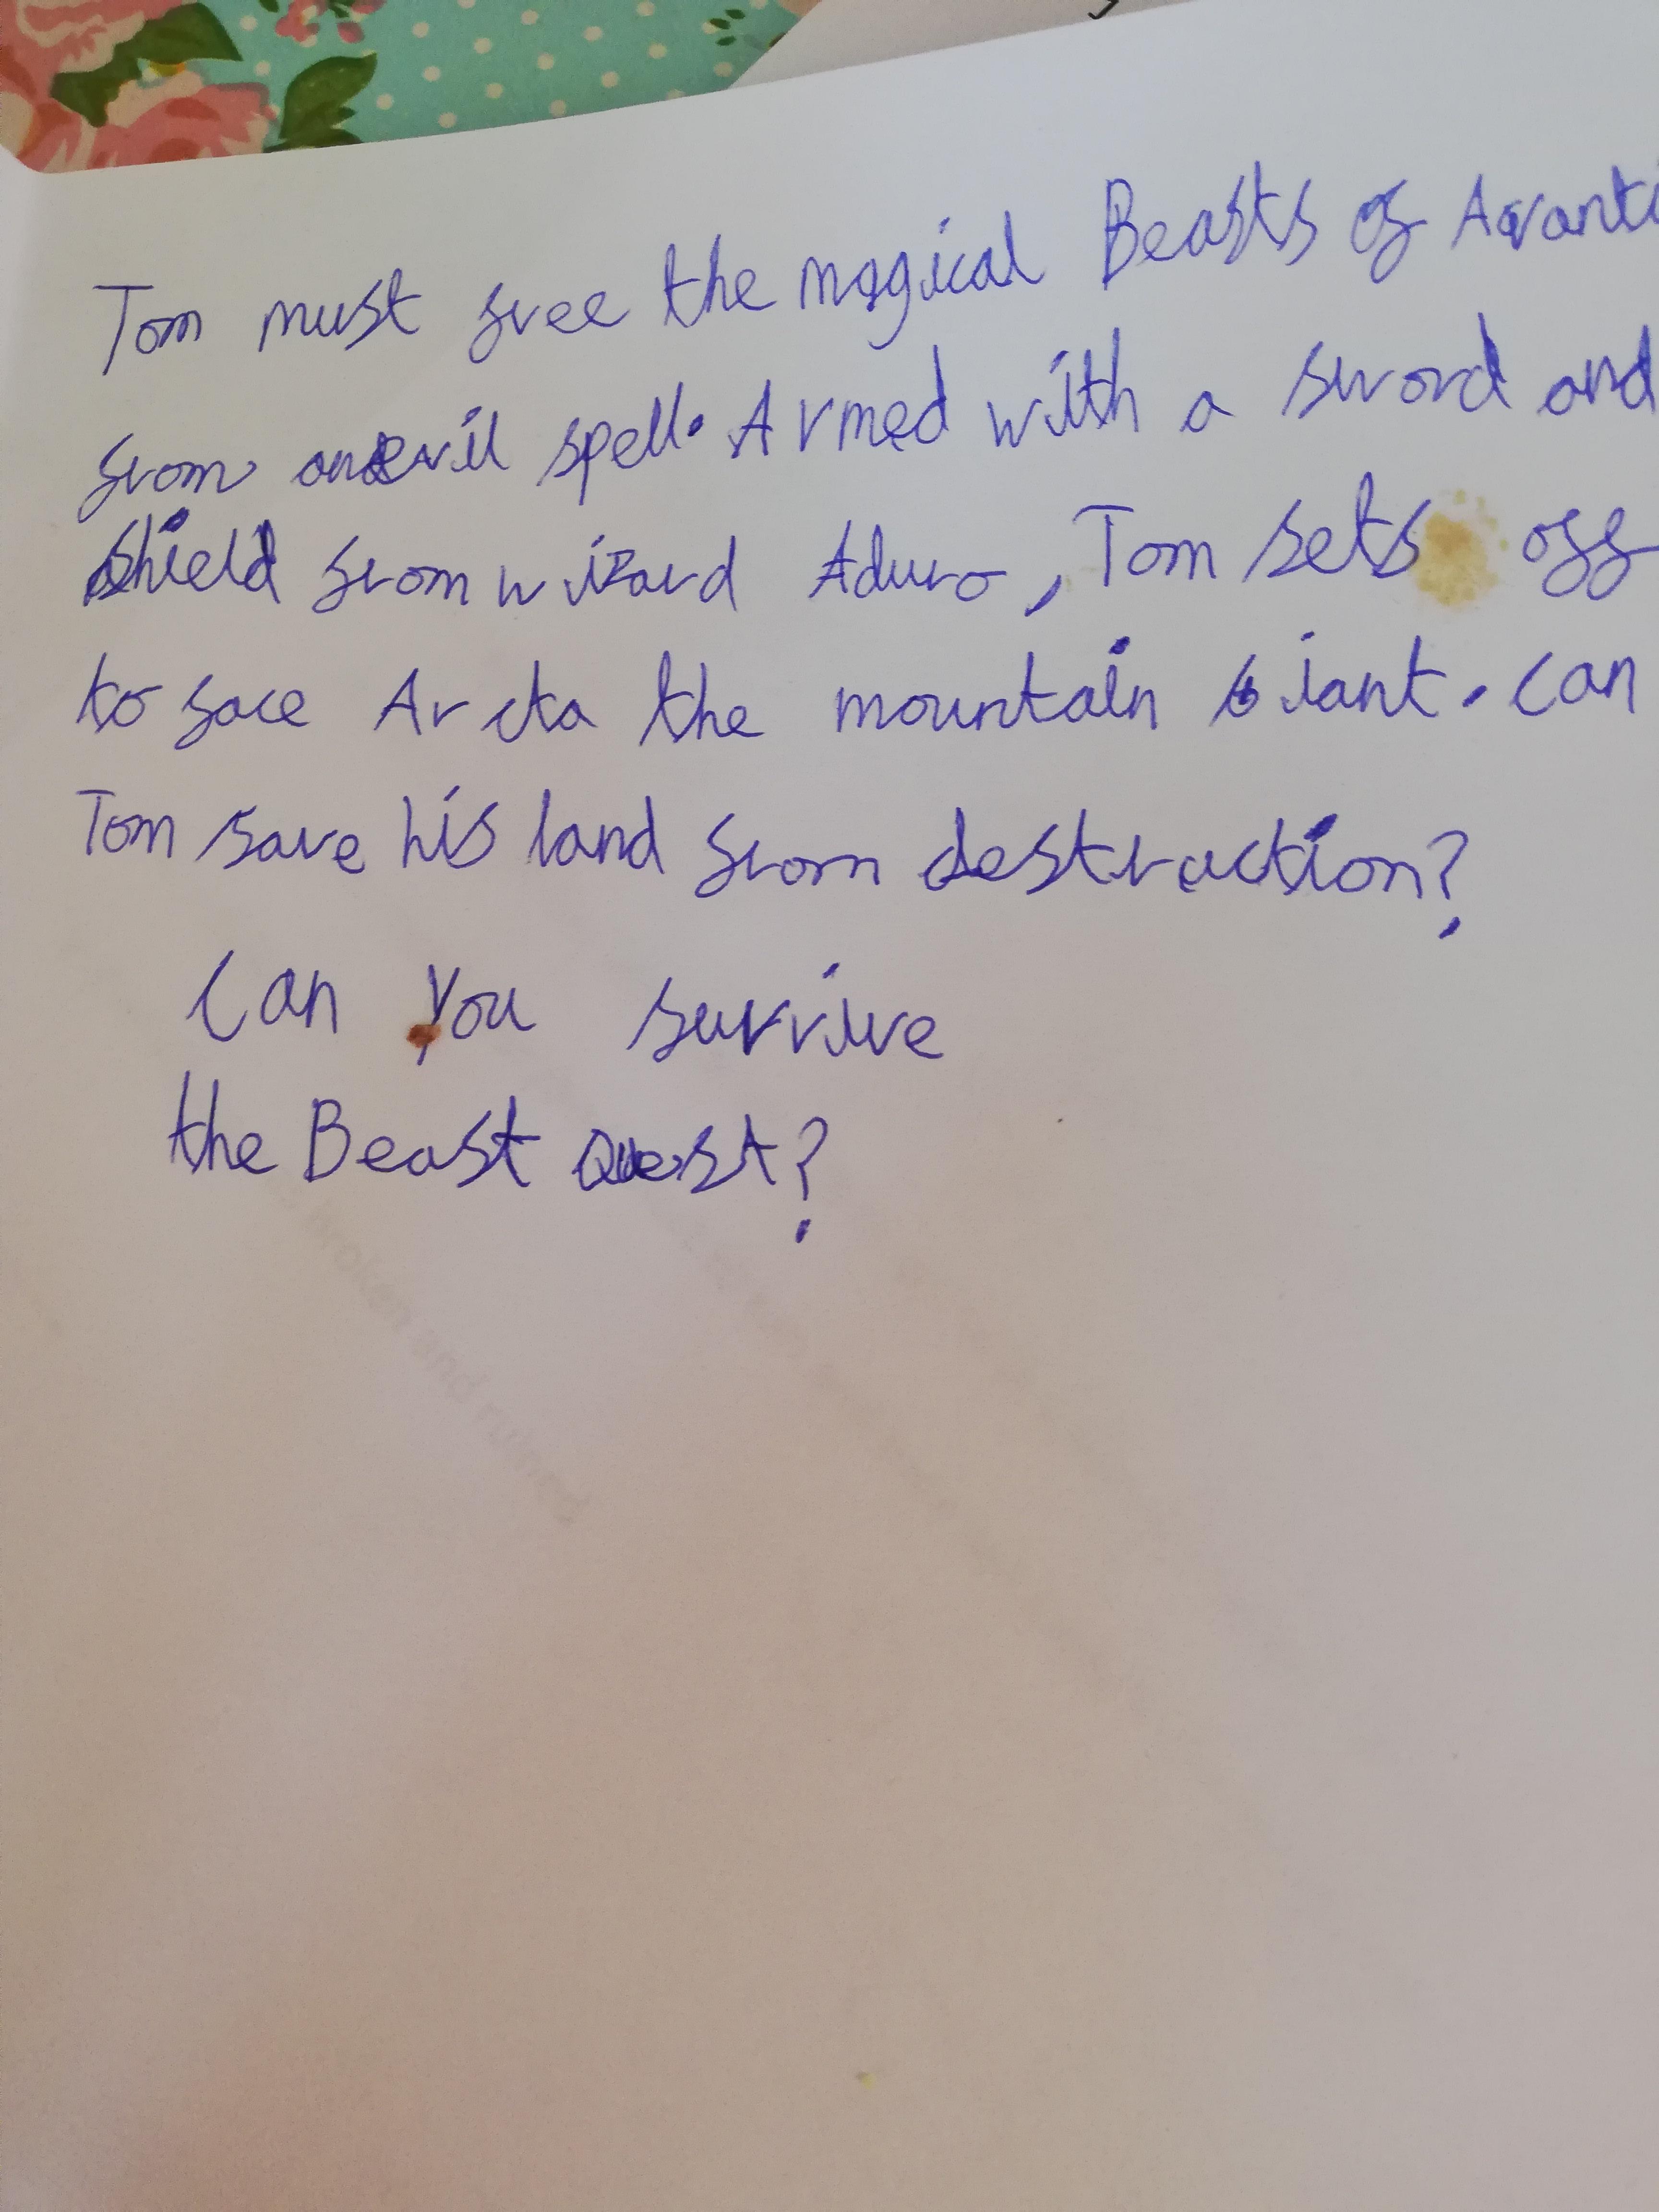 Tom must free the magical Beasts of Avanti
from an evil spell. Armed with a sword and
shield from wizard Aduro, Tom sets off
to face Arcta the mountain Giant. Can
Tom save his land from destruction?
Can you survive
the Beast Quest?
broken and ruined